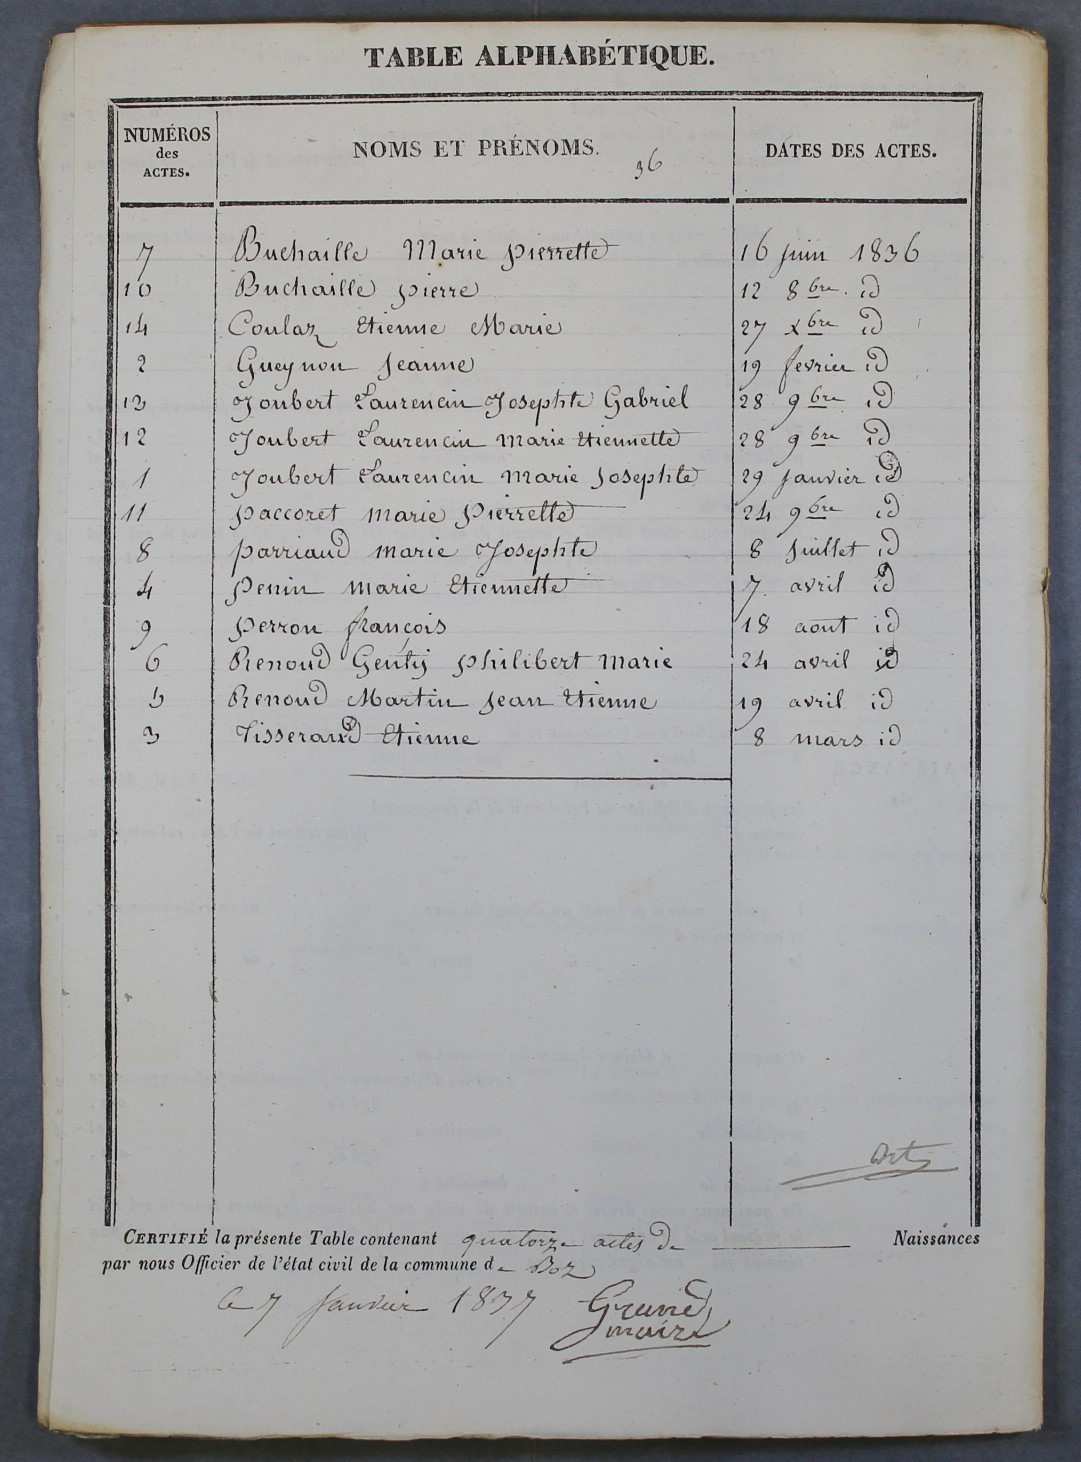 TABLE ALPHABÉTIQUE.
NUMÉROS des ACTES. NOMS ET PRÉNOMS. 36 DATES DES ACTES.
7 Buchaille Marie pierrette 16 juin 1836
10 Buchaille pierre 12 8bre. id
14 Coulaz Etienne Marie 27 xbre id
2 Gueynon Jeanne 19 fevrier id
13 Joubert Laurencin Josephte Gabriel 28 9bre id
12 Joubert Laurencin marie Etiennette 28 9bre id
1 Joubert Laurencin marie Josephte 29 janvier id
11 paccoret marie Pierrette 24 9bre id
8 parriaud marie Josephte 8 juillet id
4 penin marie Etiennette 7 avril id
9 perron françois 18 aout id
6 Renoud Gentij philibert marie 24 avril id
5 Renoud Martin jean Etienne 19 avril id
3 Tisserand Etienne 8 mars id
CERTIFIÉ la présente Table contenant quatorze actes de Naissances
par nous Officier de l'état civil de la commune de Boz
le 7 janvier 1837 Grand
maire